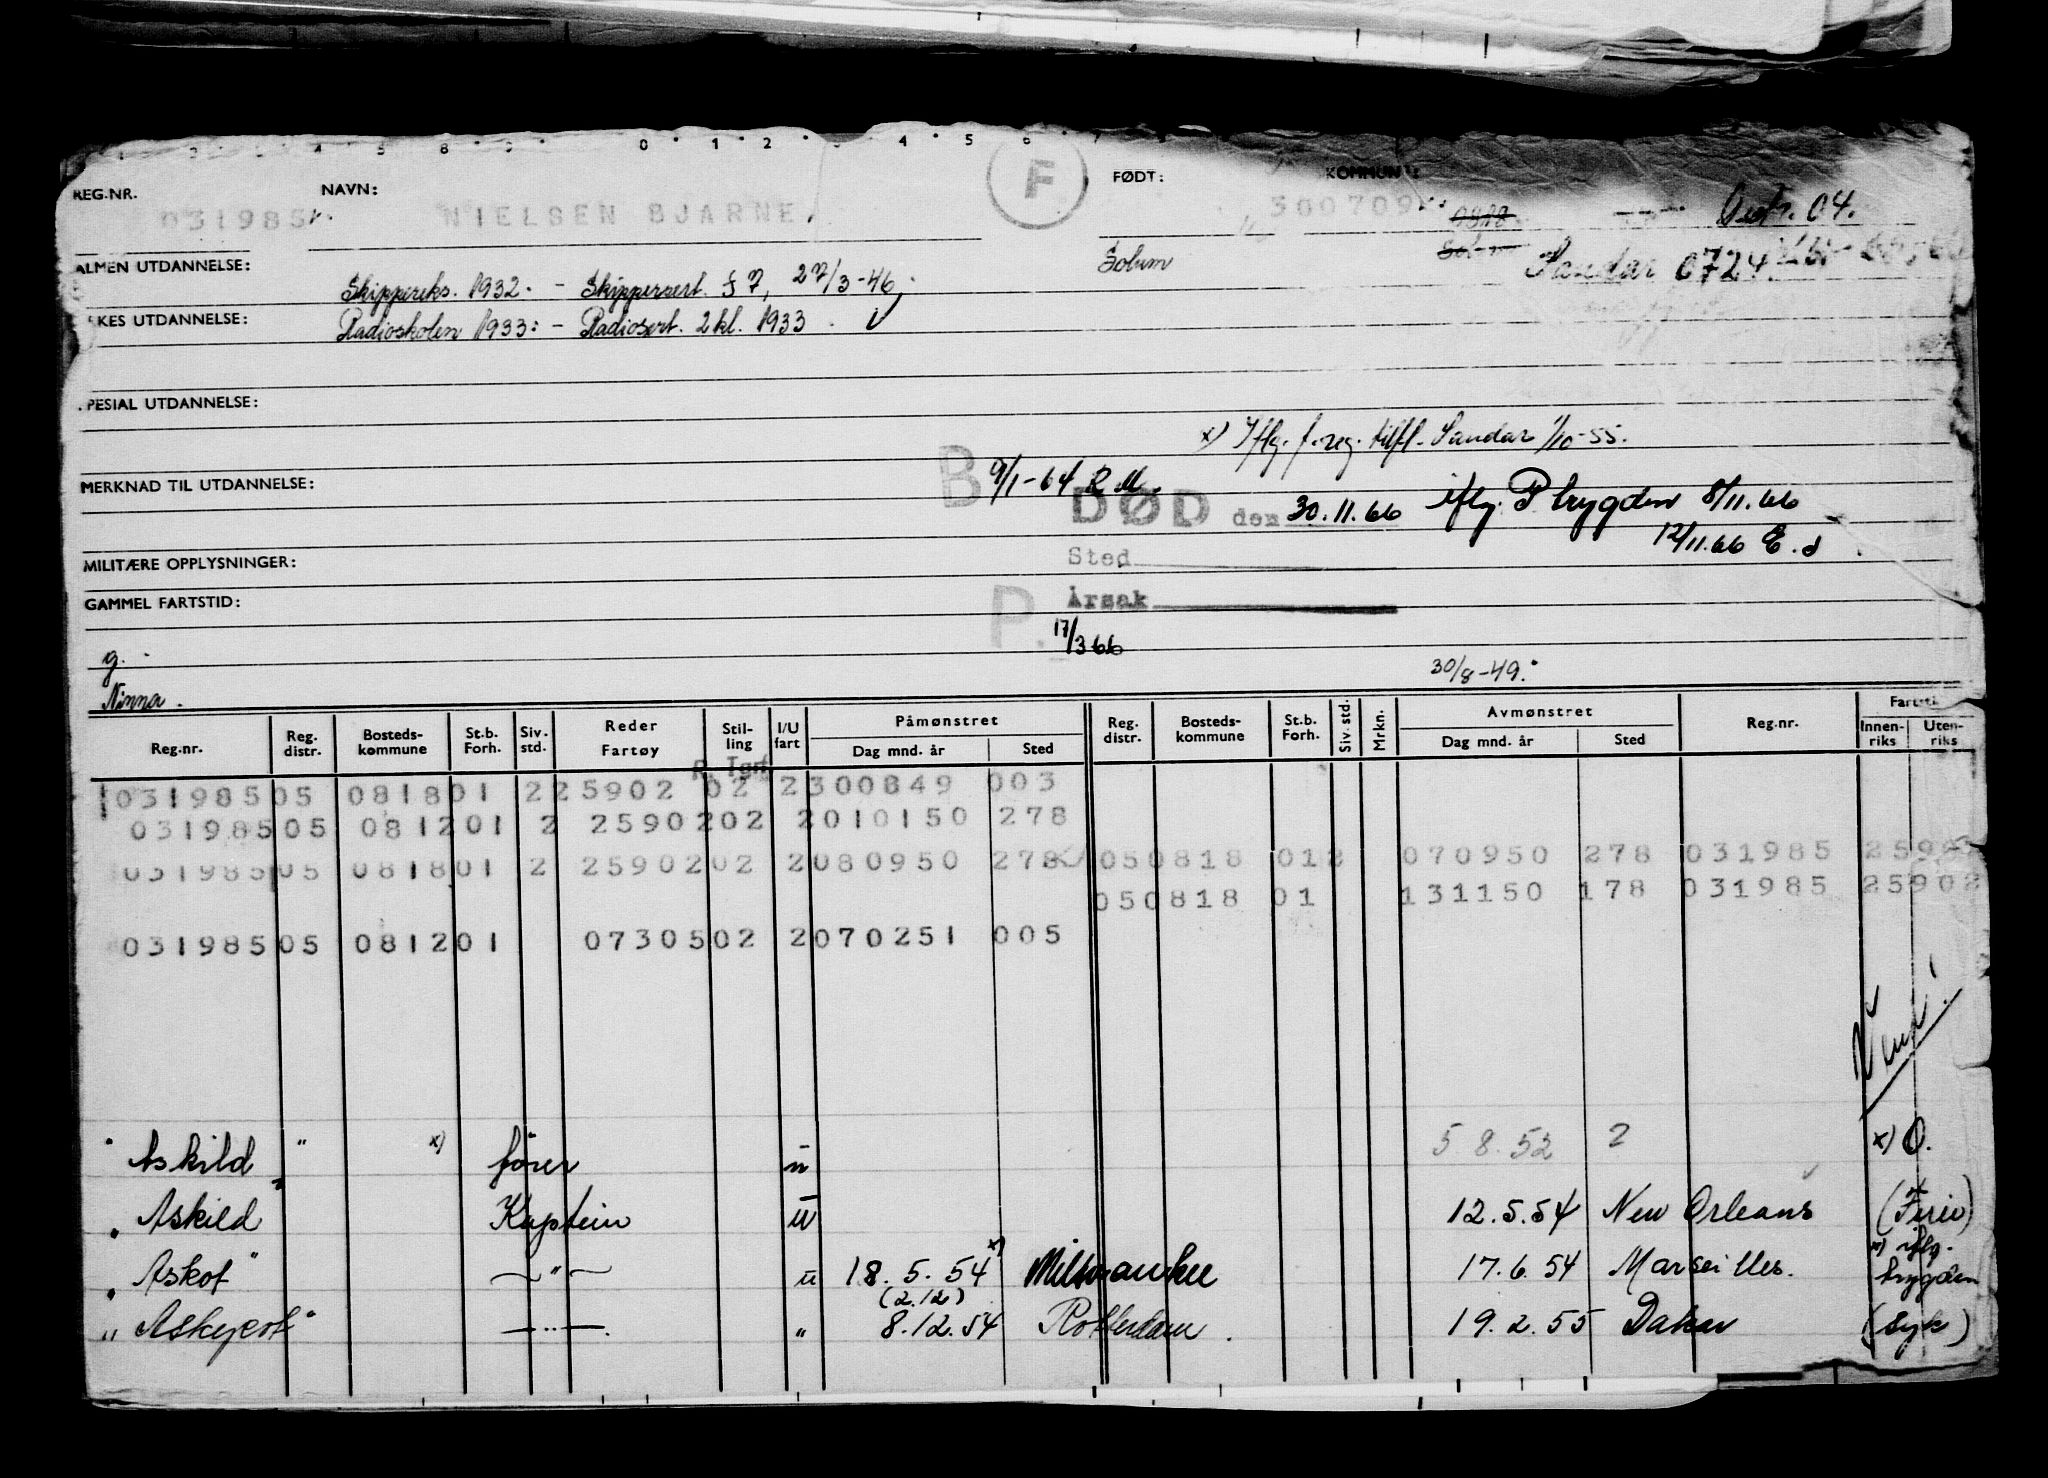 REG.NR. NAVN: F FØDT: KOMMUNE:
031985 NIELSEN BJARNE 300709 0818 Distr. 04.
Solum Solum Sandar 0724
ALMEN UTDANNELSE: Skippereks. 1932. - Skippersert. S 7, 27/3-46
UTDANNELSE: Radioskolen 1933: - Radiosert. 2 kl. 1933.
SPESIAL UTDANNELSE:
x) Iflg. f.reg. tilfl. Sandar 1/10-55.
MERKNAD TIL UTDANNELSE: B 9/1-64 R.M.
DØD den 30.11.66 iflg. P trygden 8/11.66
12/11.66 E.d
MILITÆRE OPPLYSNINGER: Sted
GAMMEL FARTSTID: P. Årsak
17/3 66
g. 30/8-49.
Ninna.
Reg.nr. Reg. distr. Bosteds-kommune St.b. Forh. Siv. std. Reder Fartøy Stil-ling I/U fart Påmønstret Dag mnd. år Sted Reg. distr. Bosteds-kommune St.b. Forh. Siv. std. Mrkn. Avmønstret Dag mnd. år Sted Reg.nr. Innen-riks Uten-riks
031985 05 0818 01 2 25902 02 2 300849 003
031985 05 0812 01 2 25902 02 2 010150 278
031985 05 0818 01 2 25902 02 2 080950 278 05 0818 01 2 070950 278 031985 25902
05 0818 01 131150 178 031985 25902
031985 05 0812 01 07305 02 2 070251 005
" Askild " x) fører u 5 8.52 2 x) O.
" Askild Kaptein u 12.5.54 New Orleans (Ferie)
" Askot " —"— u 18.5.54 x) Milwaukee 17.6.54 Marseilles. x) iflg. trygden
(2.12)
" Askepot " —"— " 8.12.54 Rotterdam. 19.2.55 Dakar (syk)